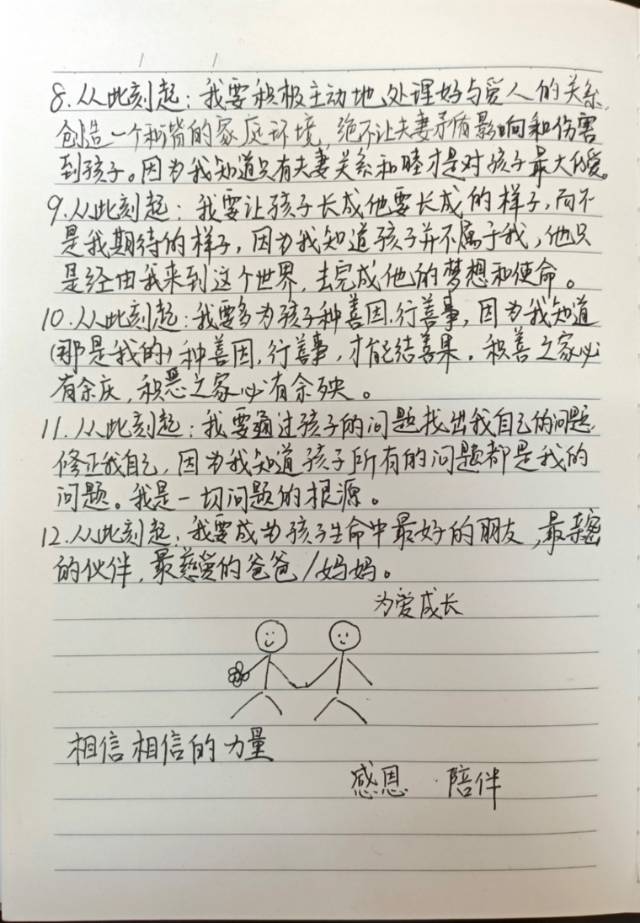 8.从此刻起:我要积极主动地,处理好与爱人的关系,
创造一个和谐的家庭环境,绝不让夫妻矛盾影响和伤害
到孩子。因为我知道只有夫妻关系和睦才是对孩子最大的爱。
9.从此刻起:我要让孩子长成他要长成的样子,而不
是我期待的样子,因为我知道孩子并不属于我,他只
是经由我来到这个世界,去完成他的梦想和使命。
10.从此刻起:我要多为孩子种善因,行善事,因为我知道
(那是我的)种善因,行善事,才能结善果。积善之家必
有余庆,积恶之家必有余殃。
11.从此刻起:我要通过孩子的问题找出我自己的问题,
修正我自己,因为我知道孩子所有的问题都是我的
问题。我是一切问题的根源。
12.从此刻起:我要成为孩子生命中最好的朋友,最亲密
的伙伴,最慈爱的爸爸/妈妈。
为爱成长
相信相信的力量
感恩 陪伴